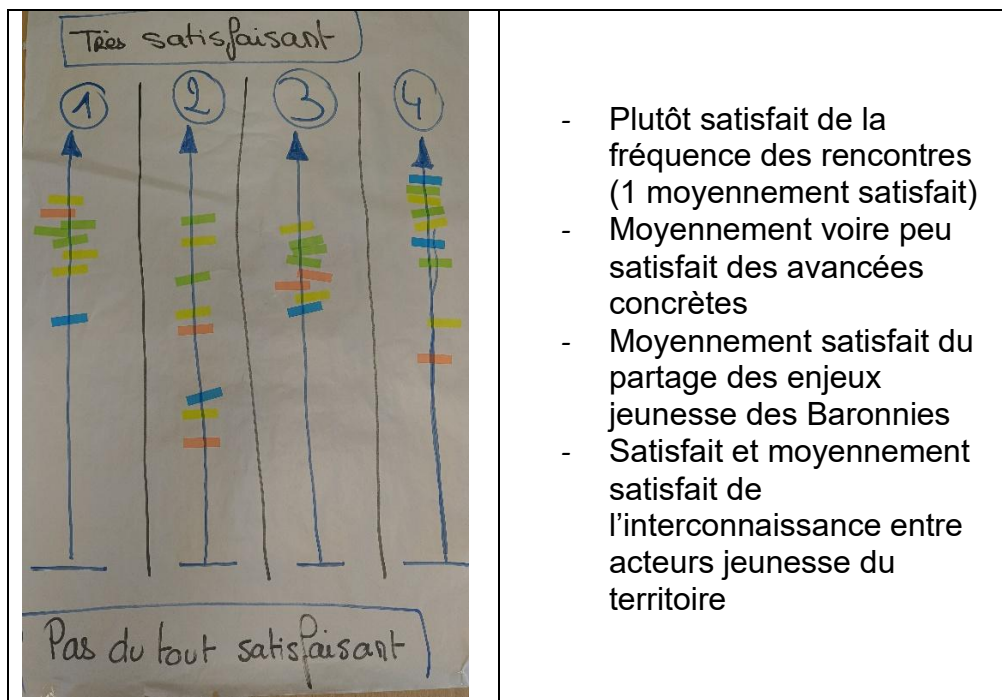 Très satisfaisant
1 2 3 4
Pas du tout satisfaisant
- Plutôt satisfait de la
fréquence des rencontres
(1 moyennement satisfait)
- Moyennement voire peu
satisfait des avancées
concrètes
- Moyennement satisfait du
partage des enjeux
jeunesse des Baronnies
- Satisfait et moyennement
satisfait de
l’interconnaissance entre
acteurs jeunesse du
territoire